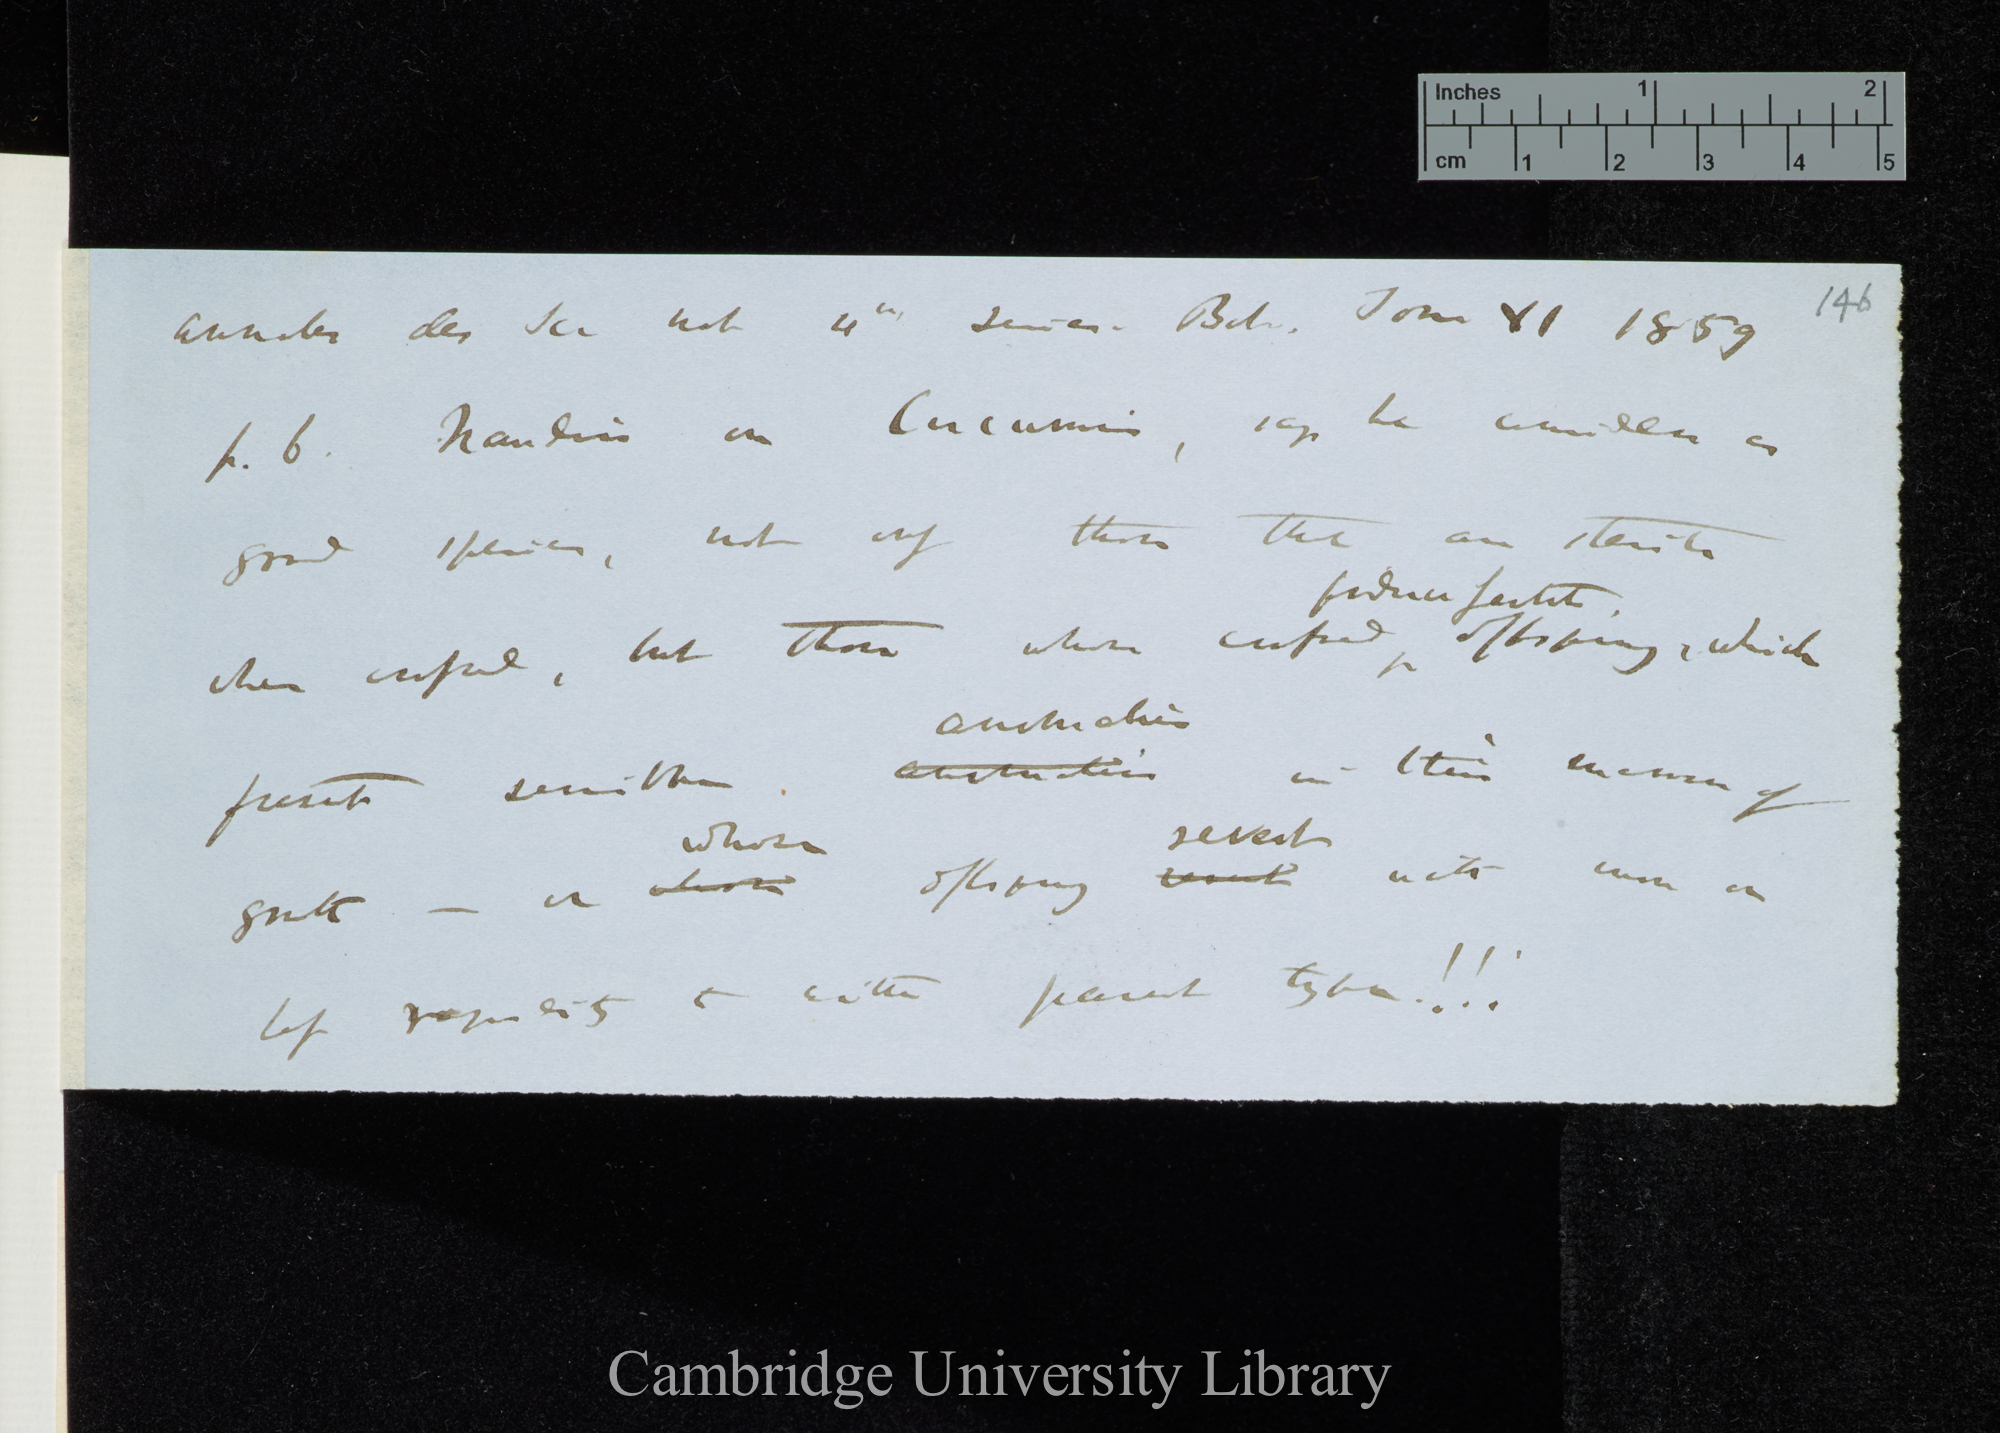 Inches 1 2
cm 1 2 3 4 5
146
Annales des Sci Nat 4th Series. Bot. Tom XI 1859
p. 6. Naudin on Cucumis, says he considers as
good species, not only those that are sterile
produce fertile
when crossed, but those when crossed, offspring, which
anomalies
presents sensible anomalies in their manner of
whose revert
growth — or whose offspring revert with more or
less rapidity to either parent type.!!!
Cambridge University Library